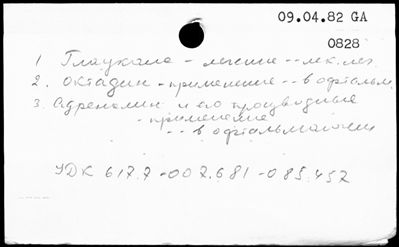 09.04.82 GA
0828
1 Глаукома - лечение -- лек. лог.
2. Октадин - применение -- в офтальм.
3. Адреналин и его производные
- применение
-- в офтальмологии
УДК 617.7-007.681-085.457